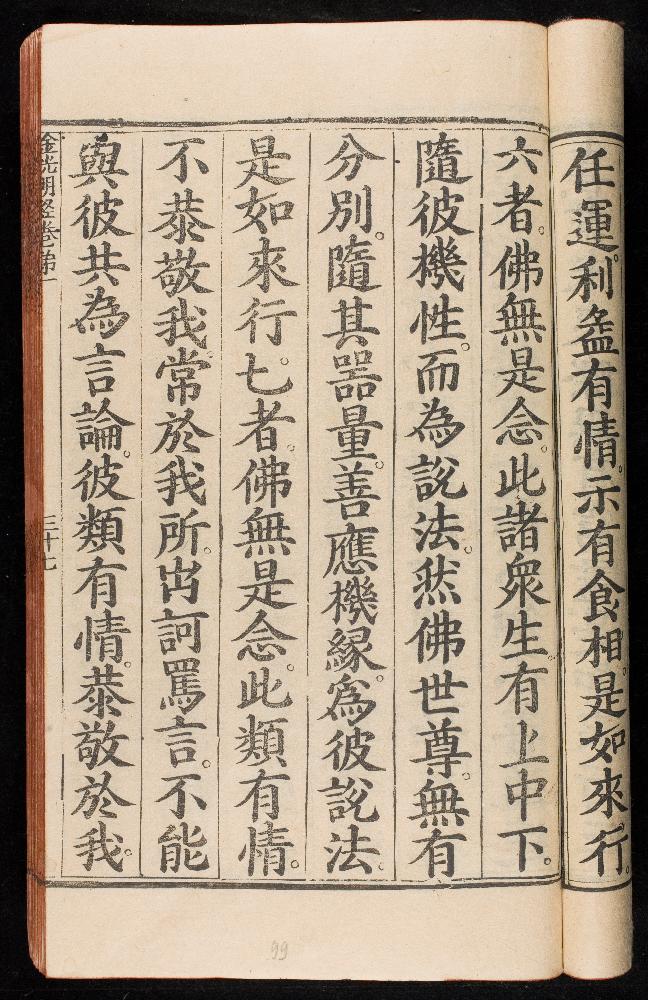 任運利益有情。示有食相。是如來行。
六者。佛無是念。此諸衆生有上中下。
隨彼機性。而為說法。然佛世尊。無有
分別。隨其器量。善應機緣。爲彼說法。
是如來行。七者。佛無是念。此類有情。
不恭敬我。常於我所。出訶罵言。不能
與彼共為言論。彼類有情。恭敬於我。
金光明经卷第一
三十七
99